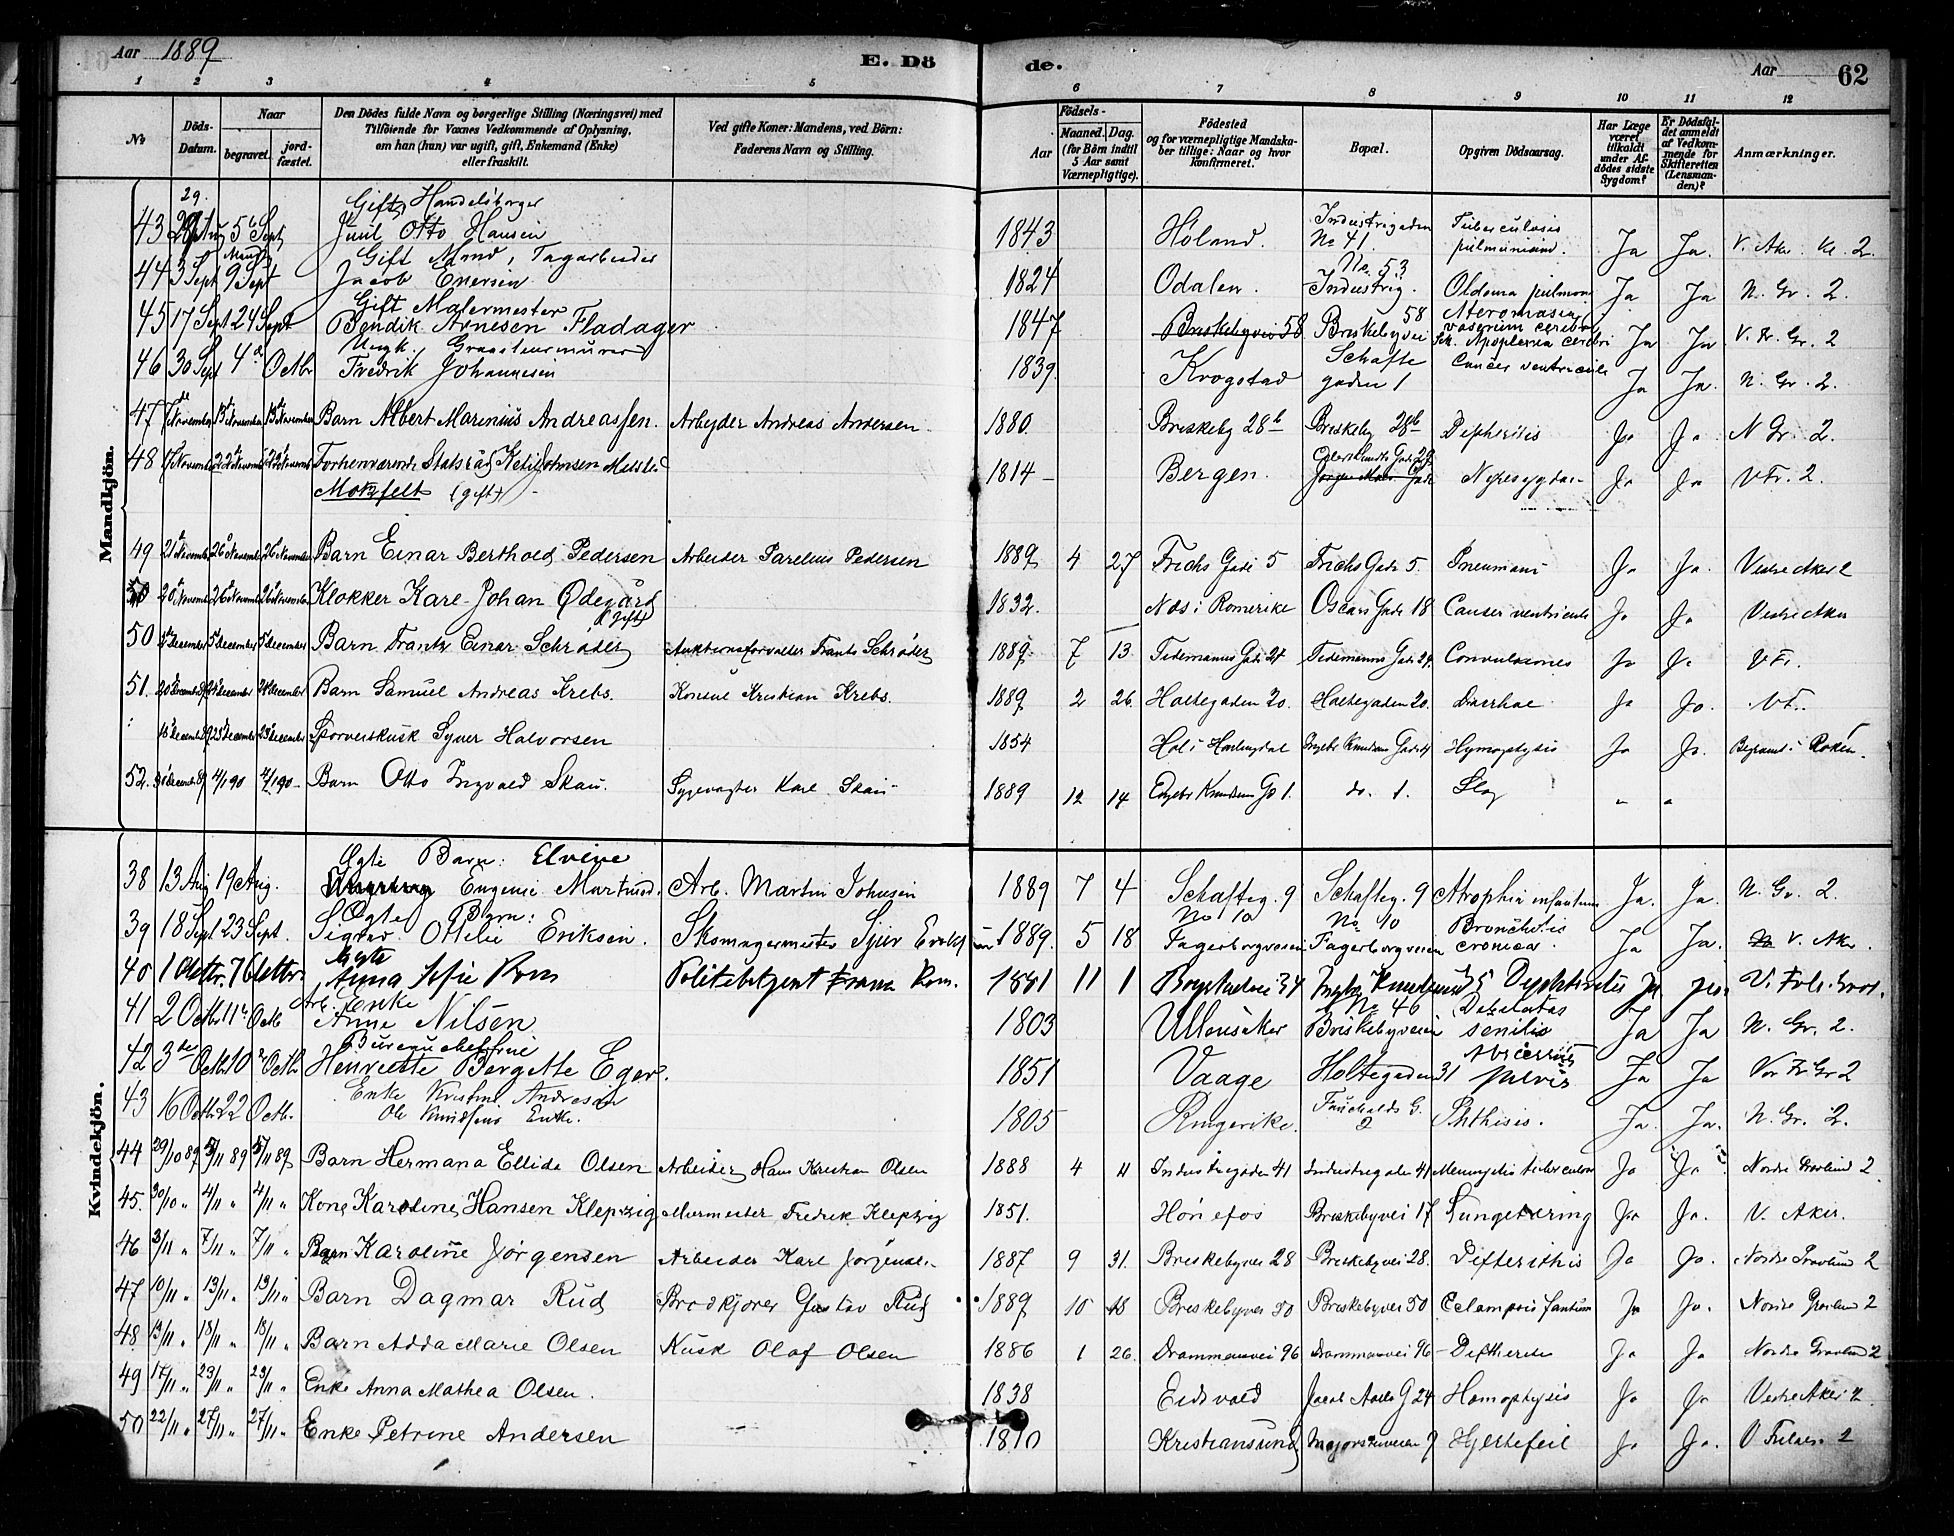 Aar 1889
E. Dö
de.
Aar
62
1 2 3 4 5 6 7 8 9 10 11 12
No
Döds-Datum.
Naar
begravet.
jordfæstet.
Den Dödes fulde Navn og borgerlige Stilling (Næringsvei) med
Tilföiende for Voxnes Vedkommende af Oplysning,
om han (hun) var ugift, gift, Enkemand (Enke)
eller fraskilt.
Ved gifte Koner: Mandens, ved Börn:
Faderens Navn og Stilling.
Födsels-
Aar
Maaned. Dag.
(for Börn indtil
5 Aar samt
Værnepligtige).
Födested
og for værnepligtige Mandskaber tillige: Naar og hvor
konfirmeret.
Bopæl.
Opgiven Dödsaarsag.
Har Læge
været
tilkaldt
under Afdödes sidste
Sygdom?
Er Dödsfaldet anmeldt
af Vedkommende for
Skifteretten
(Lensmanden)?
Anmærkninger.
Mandkjön.
29.
Gift Handelsborger
43 5te Sept Juul Otto Hansen 1843 Høland. Industrigaden No 41. Tuberculosis pulmunum. Ja Ja. V. Aker Kl. 2.
Gift Mand, Tagarbeider
44 3 Sept 9 Sept Jacob Enersen 1824 Odalen. No. 53 Industrig. Oldema pulmon Ja Ja N. Gr. 2.
Gift Malermester
45 17 Sept 24 Sept Bendik Arnesen Fladager 1847 Briskebyvei 58 Briskebyvei 58 Ateromasia vasorum cerebri Apoplexia cerebri Ja Ja V. Fr. Gr. 2
Ungk. Graastensmurer
46 30 Sept 4de Octbr Fredrik Johannesen 1839. Krogstad Schafte gaden 1 Cancer ventriculi Ja Ja. N. Gr. 2.
47 7de November 13de November 13de November Barn Albert Marinius Andreassen. Arbeider Andreas Andersen 1880. Briskeby 28b Briskeby 28b Dipheritis Ja Ja N Gr. 2.
48 17 November 22de November 22de November Forhenværende Statsråd Ketil Johnsen Melsted
Motzfelt (gift) 1814 Bergen. Eilert Sundts Gade 29 Nyresygdom Ja Ja VFr. 2.
49 21de November 26de November 26de November Barn Einar Berthold Pedersen Arbeider Parelius Pedersen 1889 4 27 Frichs Gade 5 Frichs Gade 5. Pneumoni Ja Ja. Vestre Aker 2
50 20de November 26de November 26de November Klokker Karl Johan Ødegård (gift) 1832. Nes i Romerike Oscars Gade 18 Cancer ventriculi Ja Ja Vestre Aker
50 5te December 5te December Barn Frantz Einar Schrøder Auktionsforvalter Frants Schrøder 1889. 7 13 Tidemanns Gade 27 Tidemanns Gade 27. Convulsiones Ja Ja VFr.
51. 20de December 24de December 24de December Barn Samuel Andreas Krebs. Konsul Kristian Krebs. 1889 2 26. Holtegaden 20. Holtegaden 20. Diarrhoe Ja Ja. VF.
18de December 23de December 23de December Sporveiskusk Syver Halvorsen 1854 Hol i Hallingdal Ingebr Knudsens Gade 4 Hymoptysis Ja Ja. Begravet i Røken.
52. December 89 4/1 90 4/1 90 Barn Otto Ingvald Skau. Sygevogter Karl Skau 1889 12 14 Ingebr Knudsens Gd 1. do. 1. Slag " "
Kvindekjön.
Ægte Barn: Elvine
38 13 Aug 19 Aug. Eugenie Martinsd. Arb. Martin Johnsen 1889 7 4 Schafteg. 9 Schafteg. 9 Atrophia infantum Ja. Ja. N. Gr. 2.
Ægte Barn:
39 18 Sept 23 Sept. Sigrid Ottilie Eriksen. Skomagermester Sjur 1889. 5 18 No 10 Fagerborgveien No 10 Fagerborgveien Bronchitis cronica Ja Ja. V. Aker.
Ægte
40 1 Octbr. 7 Octbr. Anna Sofie Rom Politibetjent Frans Rom. 11 1 Knudsens 35 Diphtheritis Ja V. Fols.
Arb. Enke
41 2 Octbr 11te Octb Anne Nilsen 1803 Ullensaker No 46 Briskebyveien senilis Ja Ja N. Gr. 2.
Bureauchefsfrue
42 3die Octbr 10de Octbr Henriette Bergette Eger. 1851 Vaage Holtegaden 31 Abscessus pelvis Ja Ja Vor Fr Gr 2
43 16 Octbr 22 Octbr. Enke Kristine Andresen
Ole Knudsens Enke. 1805 Ringerike. Fauchalds G. 2 Phthisis. Ja. Ja. N. Gr. 2.
44 29/10 89 5/11 89 5/11 89 Barn Hermana Ellida Olsen Arbeider Hans Kristian Olsen 1888 4 11 Industrigaden 41 Industrigaden 41 Ja Ja Nordre Gravlund 2
45. 30/10 " 4/11 " 4/11 " Kone Karoline Hansen Klepzig Murmester Fredrik Klepzig 1851. Hønefos Briskebyvei 17 Lungetæring Ja Ja. V. Aker.
46 3/11 " 7/11 " 7/11 " Barn Karoline Jørgensen Arbeider Karl Jørgensen 1887 9 31. Briskebyvei 28 Briskebyvei 28. Difterithis Ja Ja. Nordre Gravlund 2
47 10/11 " 13/11 " 13/11 " Barn Dagmar Rud Brødkjører Gustav Rud 1889 10 18 Briskebyvei 50 Briskebyvei 50 Eclampsis fantium Ja Ja. Nordre Gravlund 2
48 13/11 " 18/11 " 18/11 " Barn Adda Marie Olsen Kusk Olaf Olsen 1886 1 26. Drammensvei 96 Drammensvei 96 Diftherite Ja Ja Nordre Gravlund 2
49 17/11 " 23/11 " 23/11 " Enke Anna Mathea Olsen. 1838 Eidsvold Jacob Aalls G 24 Hæmoptysis Ja Ja Vestre Aker 2
50 22/11 " 27/11 " 27/11 " Enke Petrine Andersen 1810 Kristiansund Majorstuveien 7 Hjertefeil Ja Ja. V Frelsers 2